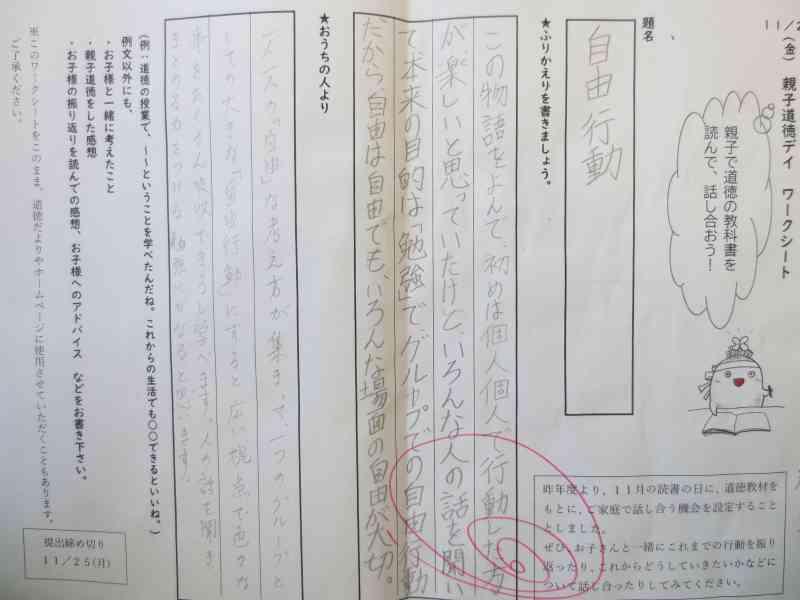 11/2
(金) 親子道徳デイ ワークシート
親子で道徳の教科書を
読んで、話し合おう！
昨年度より、11月の読書の日に、道徳教材を
もとに、ご家庭で話し合う機会を設定すること
としました。
ぜひ、お子さんと一緒にこれまでの行動を振り
返ったり、これからどうしていきたいかなどに
ついて話し合ったりしてみてください。
題名
自由行動
★ふりかえりを書きましょう。
この物語をよんで、初めは個人個人で行動した方
が、楽しいと思っていたけど、いろんな人の話を聞い
て、本来の目的は「勉強」で、グループでの自由行動
だから、自由は自由でも、いろんな場面の自由が大切。
★おうちの人より
一人一人の「自由」な考え方が集まって、一つのグループと
しての大きな「自由行動」にすると広い視点で色々な
事をたくさん吸収できそうと学べます。人の話を聞き
まとめる力をつける勉強にもなると思います!
(例:道徳の授業で、～～ということを学べたんだね。これからの生活でも○○できるといいね。)
例文以外にも、
・お子様と一緒に考えたこと
・親子道徳をした感想
・お子様の振り返りを読んでの感想、お子様へのアドバイス などをお書き下さい。
※このワークシートをこのまま、道徳だよりやホームページに使用させていただくこともあります。
ご了承ください。
提出締め切り
11/25(月)